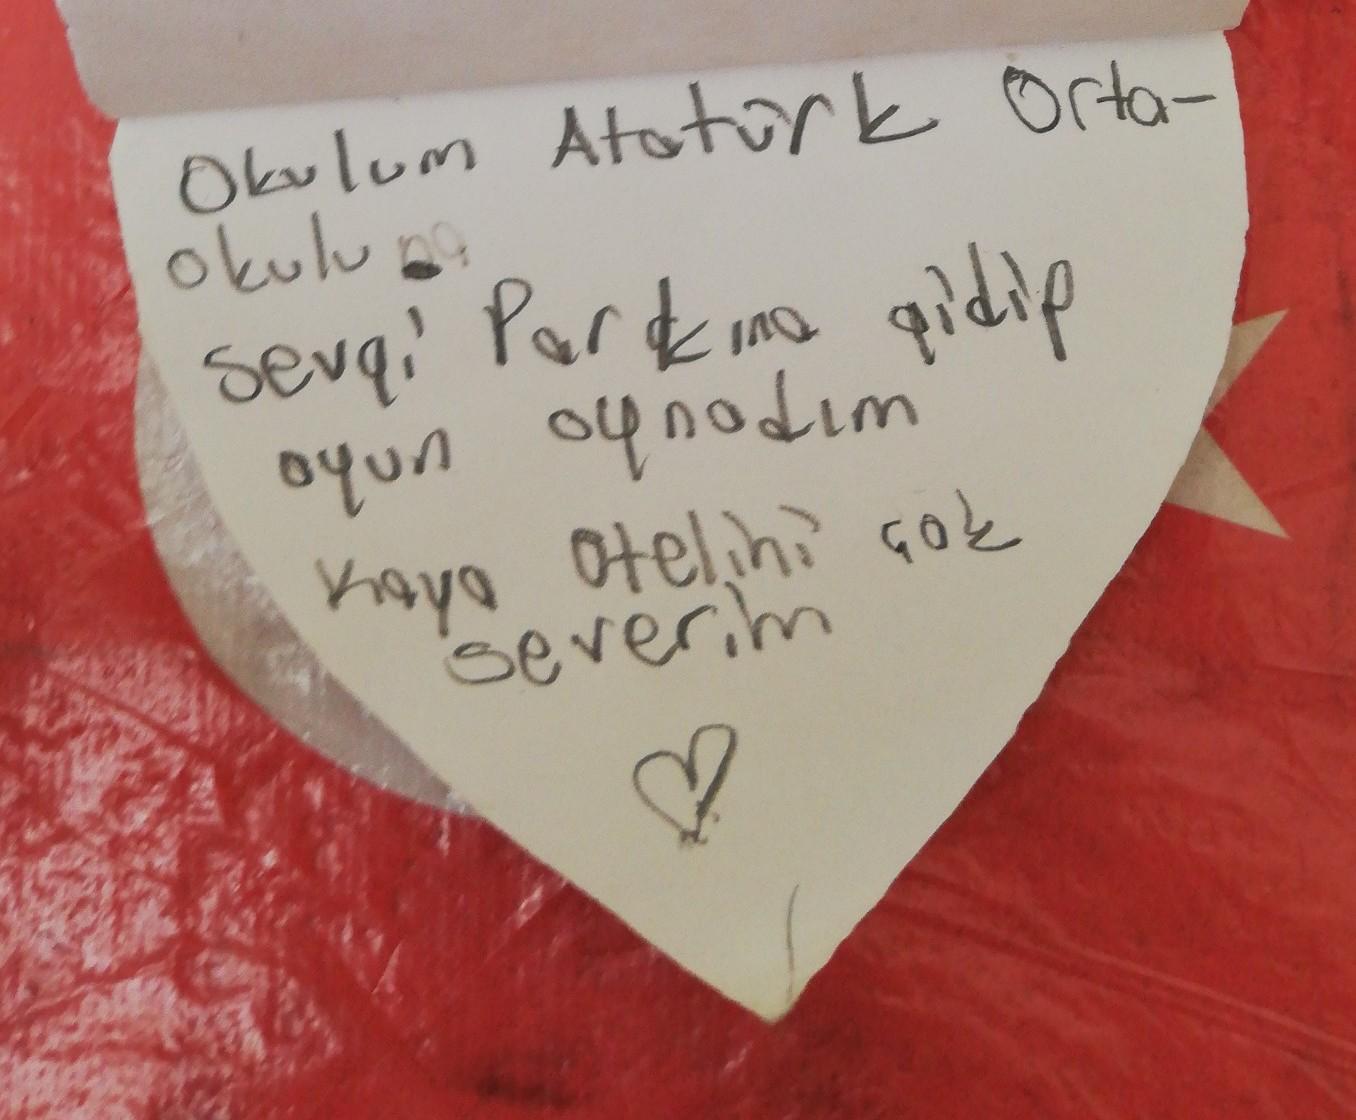 Okulum Atatürk Orta-
okulu
sevgi Parkına gidip
oyun oynadım
Kaya Otelini çok
severim